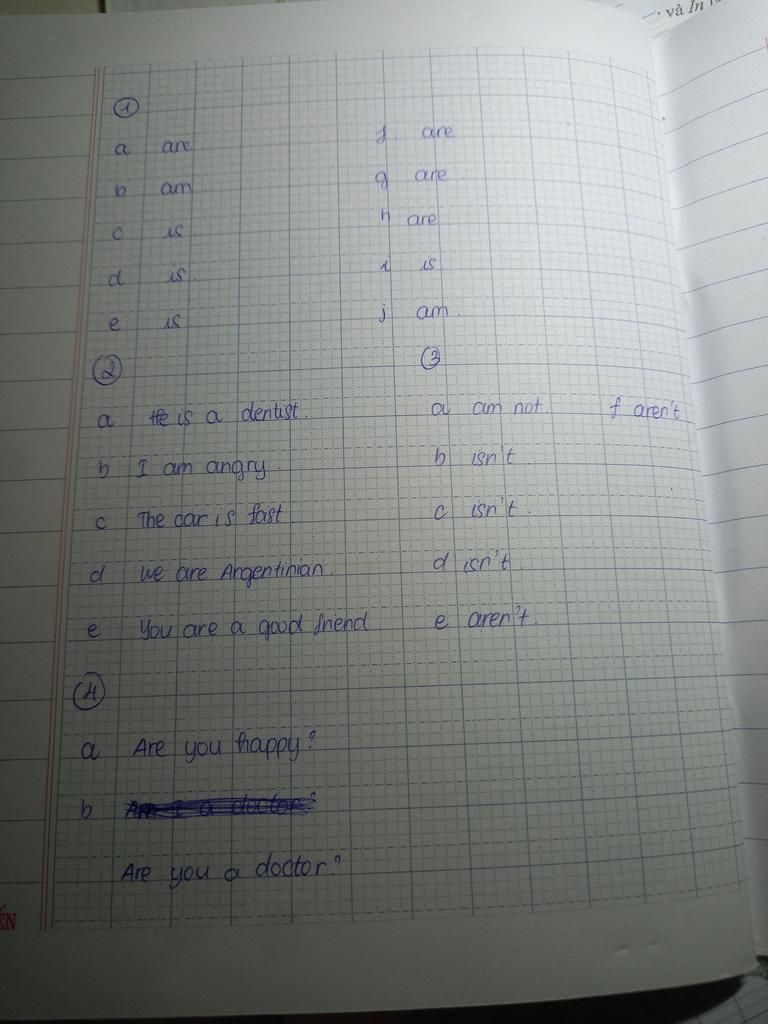 và In
1
a are f are
b am g are
c is h are
d is i is
e is j am.
2 3
a He is a dentist. a am not. f aren't
b I am angry. b isn't.
c The car is fast. c isn't.
d We are Argentinian. d isn't.
e You are a good friend e aren't.
4
a Are you happy?
b Am I a doctor?
Are you a doctor?
ẾN